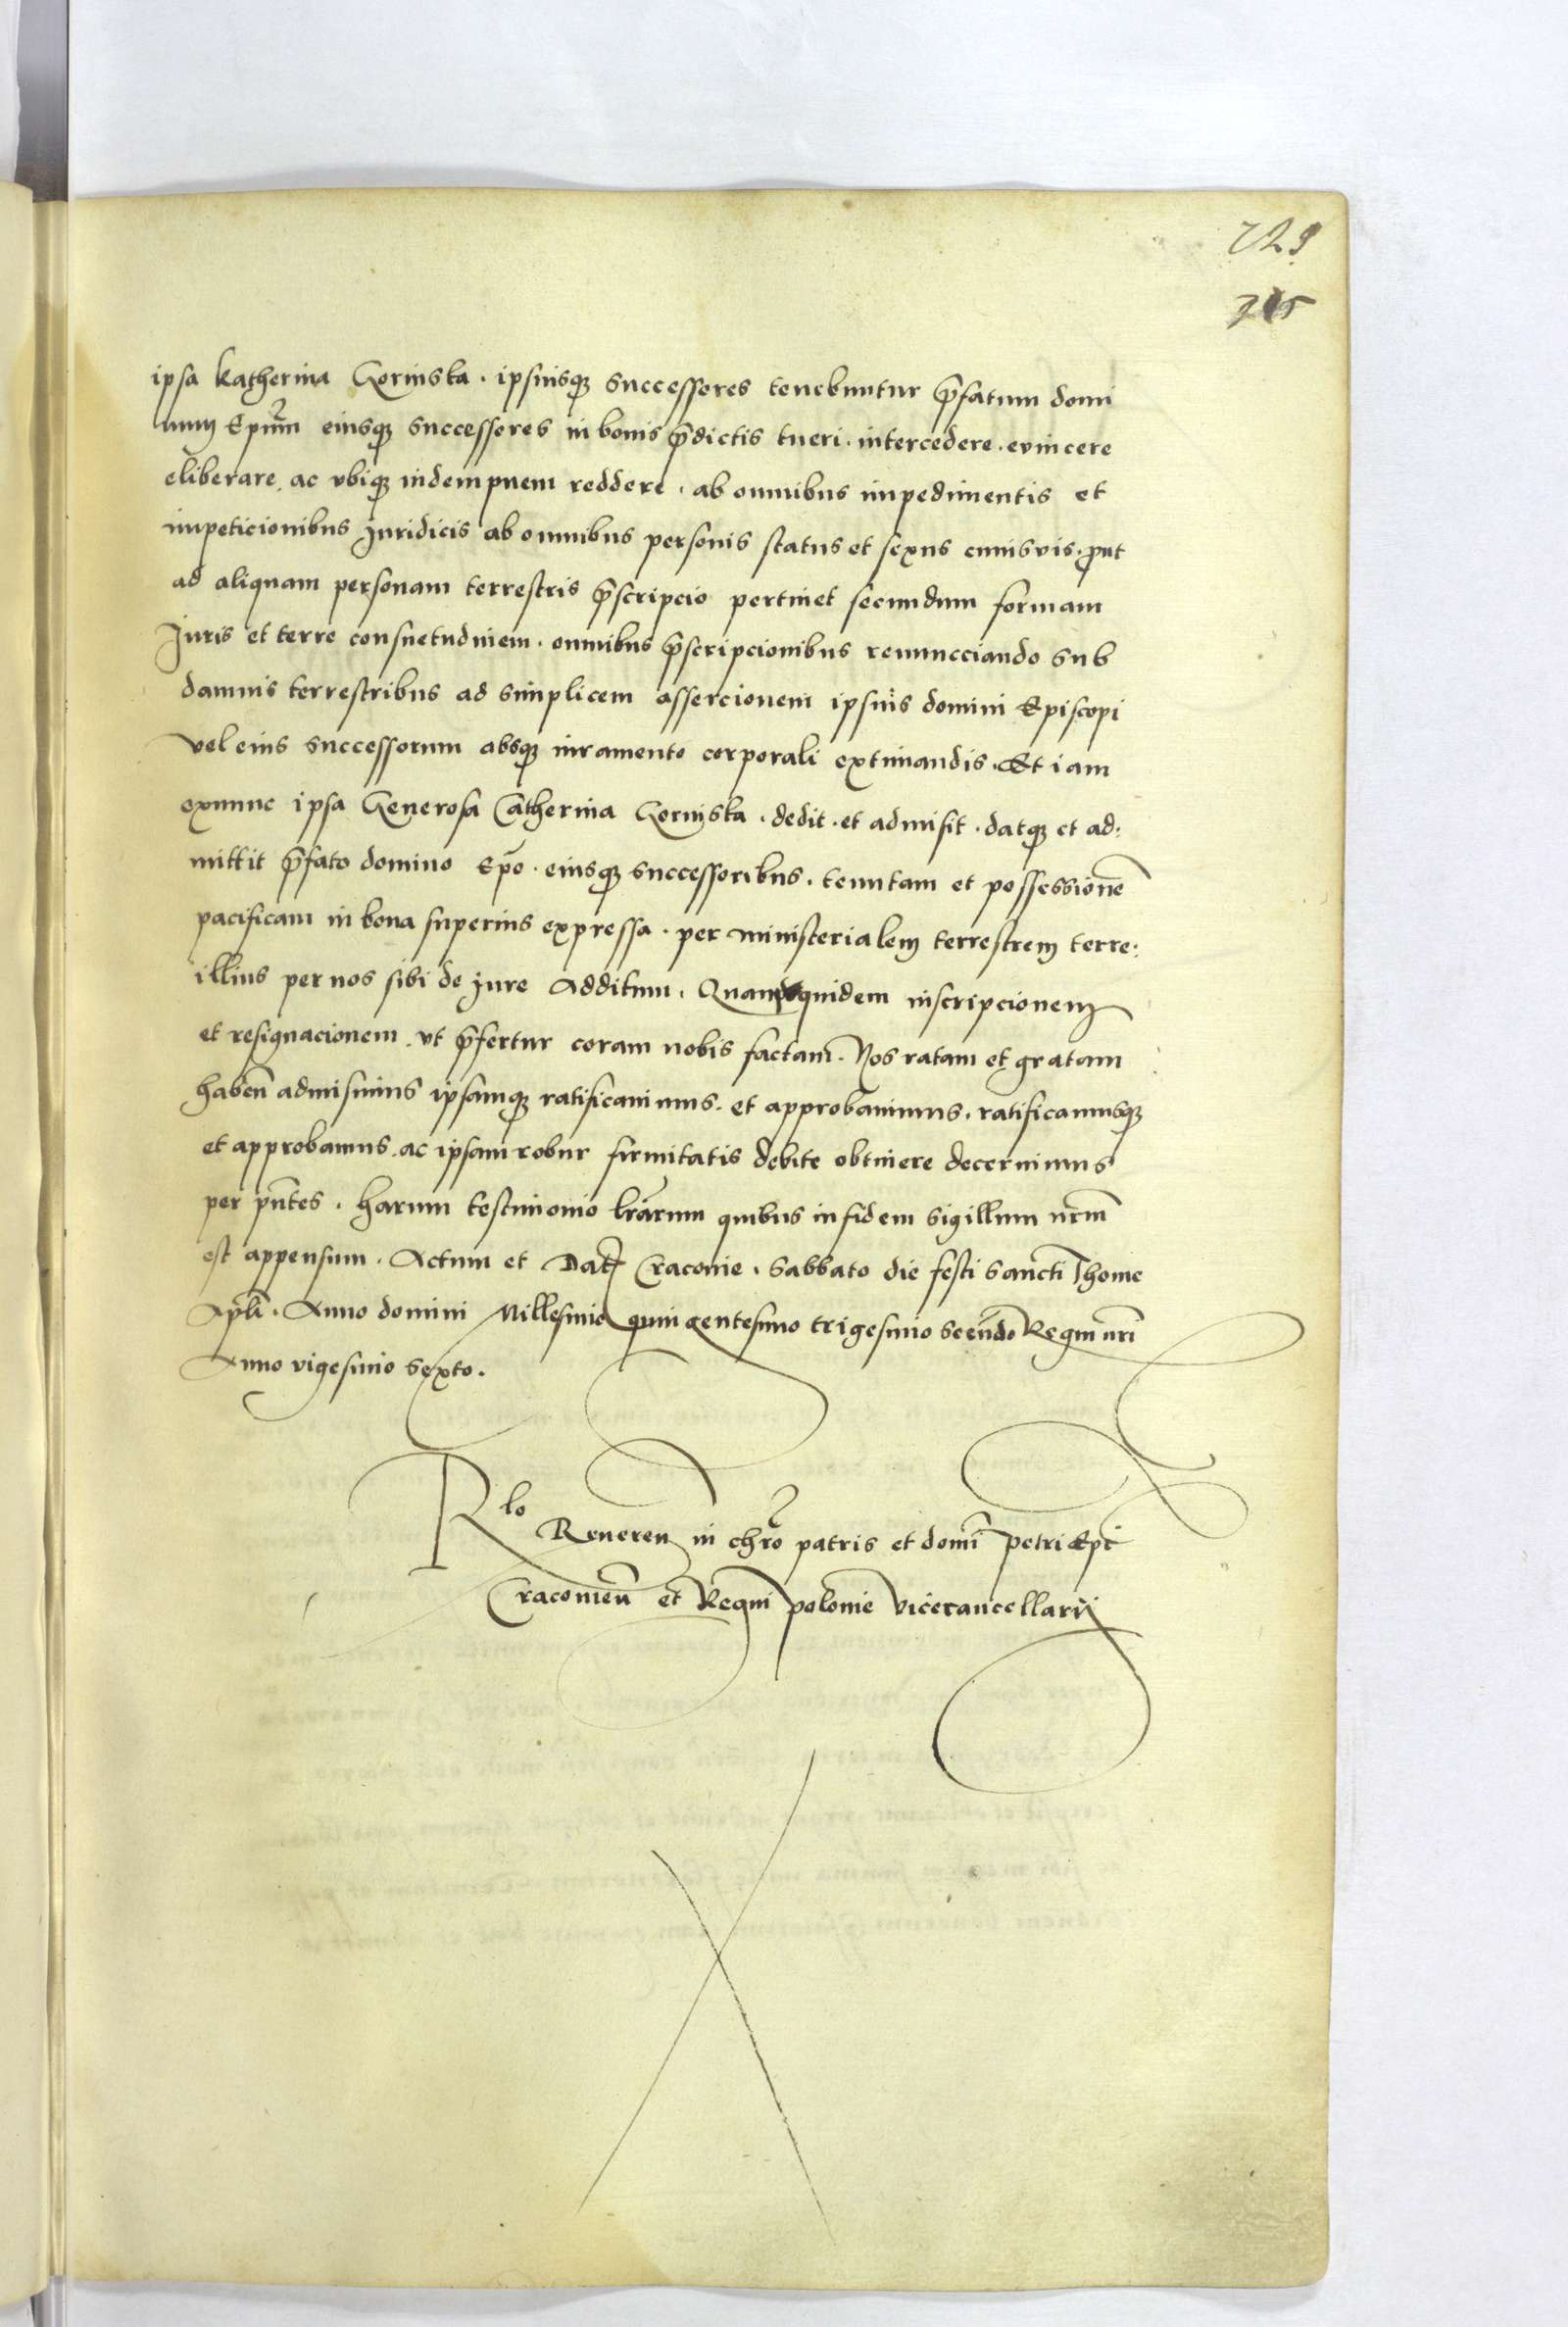 729
ipsa Katherina Gorinska . ipsiusq3 successores tenebuntur p̄fatum domi
num Ep̄um eiusq3 successores in bonis p̄dictis tueri . intercedere . euincere
eliberare . ac vbiq3 indempnem reddere . ab omnibus impedimentis et
impeticionibus Juridicis ab omnibus personis status et sexus cuiusvis . put
ad aliquam personam terrestris p̄scripcio pertinet secundum formam
Juris et terre consuetudinem . omnibus p̄scripcionibus renuncciando sub
damnis terrestribus ad simplicem assercionem ipsius domini Episcopi
vel eius successorum absq3 iuramento corporali extimandis . Et iam
exnunc ipsa Generosa Catherina Gorinska . dedit . et admisit . datq3 et ad:
mittit p̄fato domino Ep̄o . eiusq3 successoribus . tenutam et possessionē
pacificam in bona superius expressa . per ministerialem terrestrem terre:
illius per nos sibi de jure Additum . Quamquidem inscripcionem
et resignacionem . vt p̄fertur coram nobis factam . Nos ratam et gratam
haben̄ admisimus ipsamq3 ratificauimus . et approbauimus . ratificamusq3
et approbamus . ac ipsam robur firmitatis debite obtinere decernimus
per pn̄tes . Harum testimonio lr̄arum quibus in fidem sigillum nr̄m
est appensum . Actum et Dat Cracouie . Sabbato die festi Sancti Thome
Apl̄i . Anno domini Millesimo quingentesimo trigesimo secūdo Regni nr̄i
Anno vigesimo sexto .
Rlo
Reueren in chr̄o patris et domī Petri Ep̄i
Cracouien̄ et Regni polonie vicecancellarij